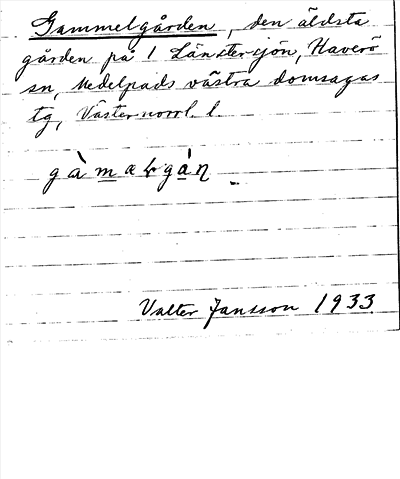 Gammelgården, den äldsta
gården på 1 Länstersjön, Haverö
sn, Medelpads västra domsagas
tg, Västernorrl. l.
gàmaɫgán
Valter Jansson 1933.